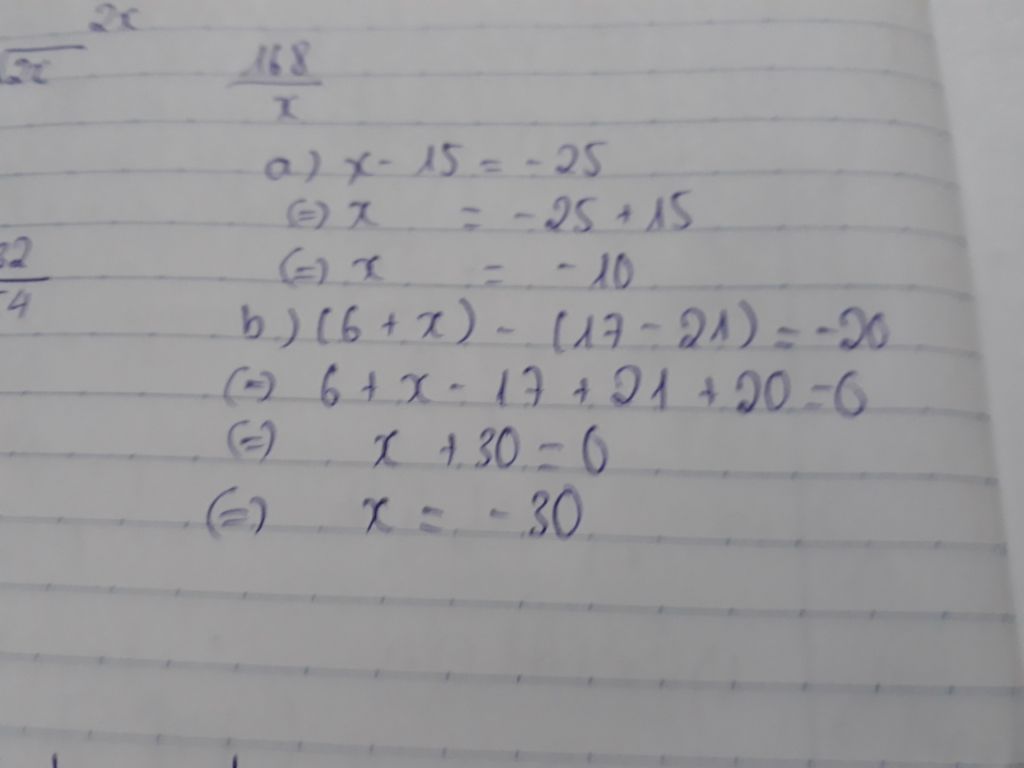 2x
√2x
168
x
a) x - 15 = -25
(=) x = -25 + 15
(=) x = -10
32
-4
b) (6 + x) - (17 - 21) = -20
(=) 6 + x - 17 + 21 + 20 = 0
(=) x + 30 = 0
(=) x = -30